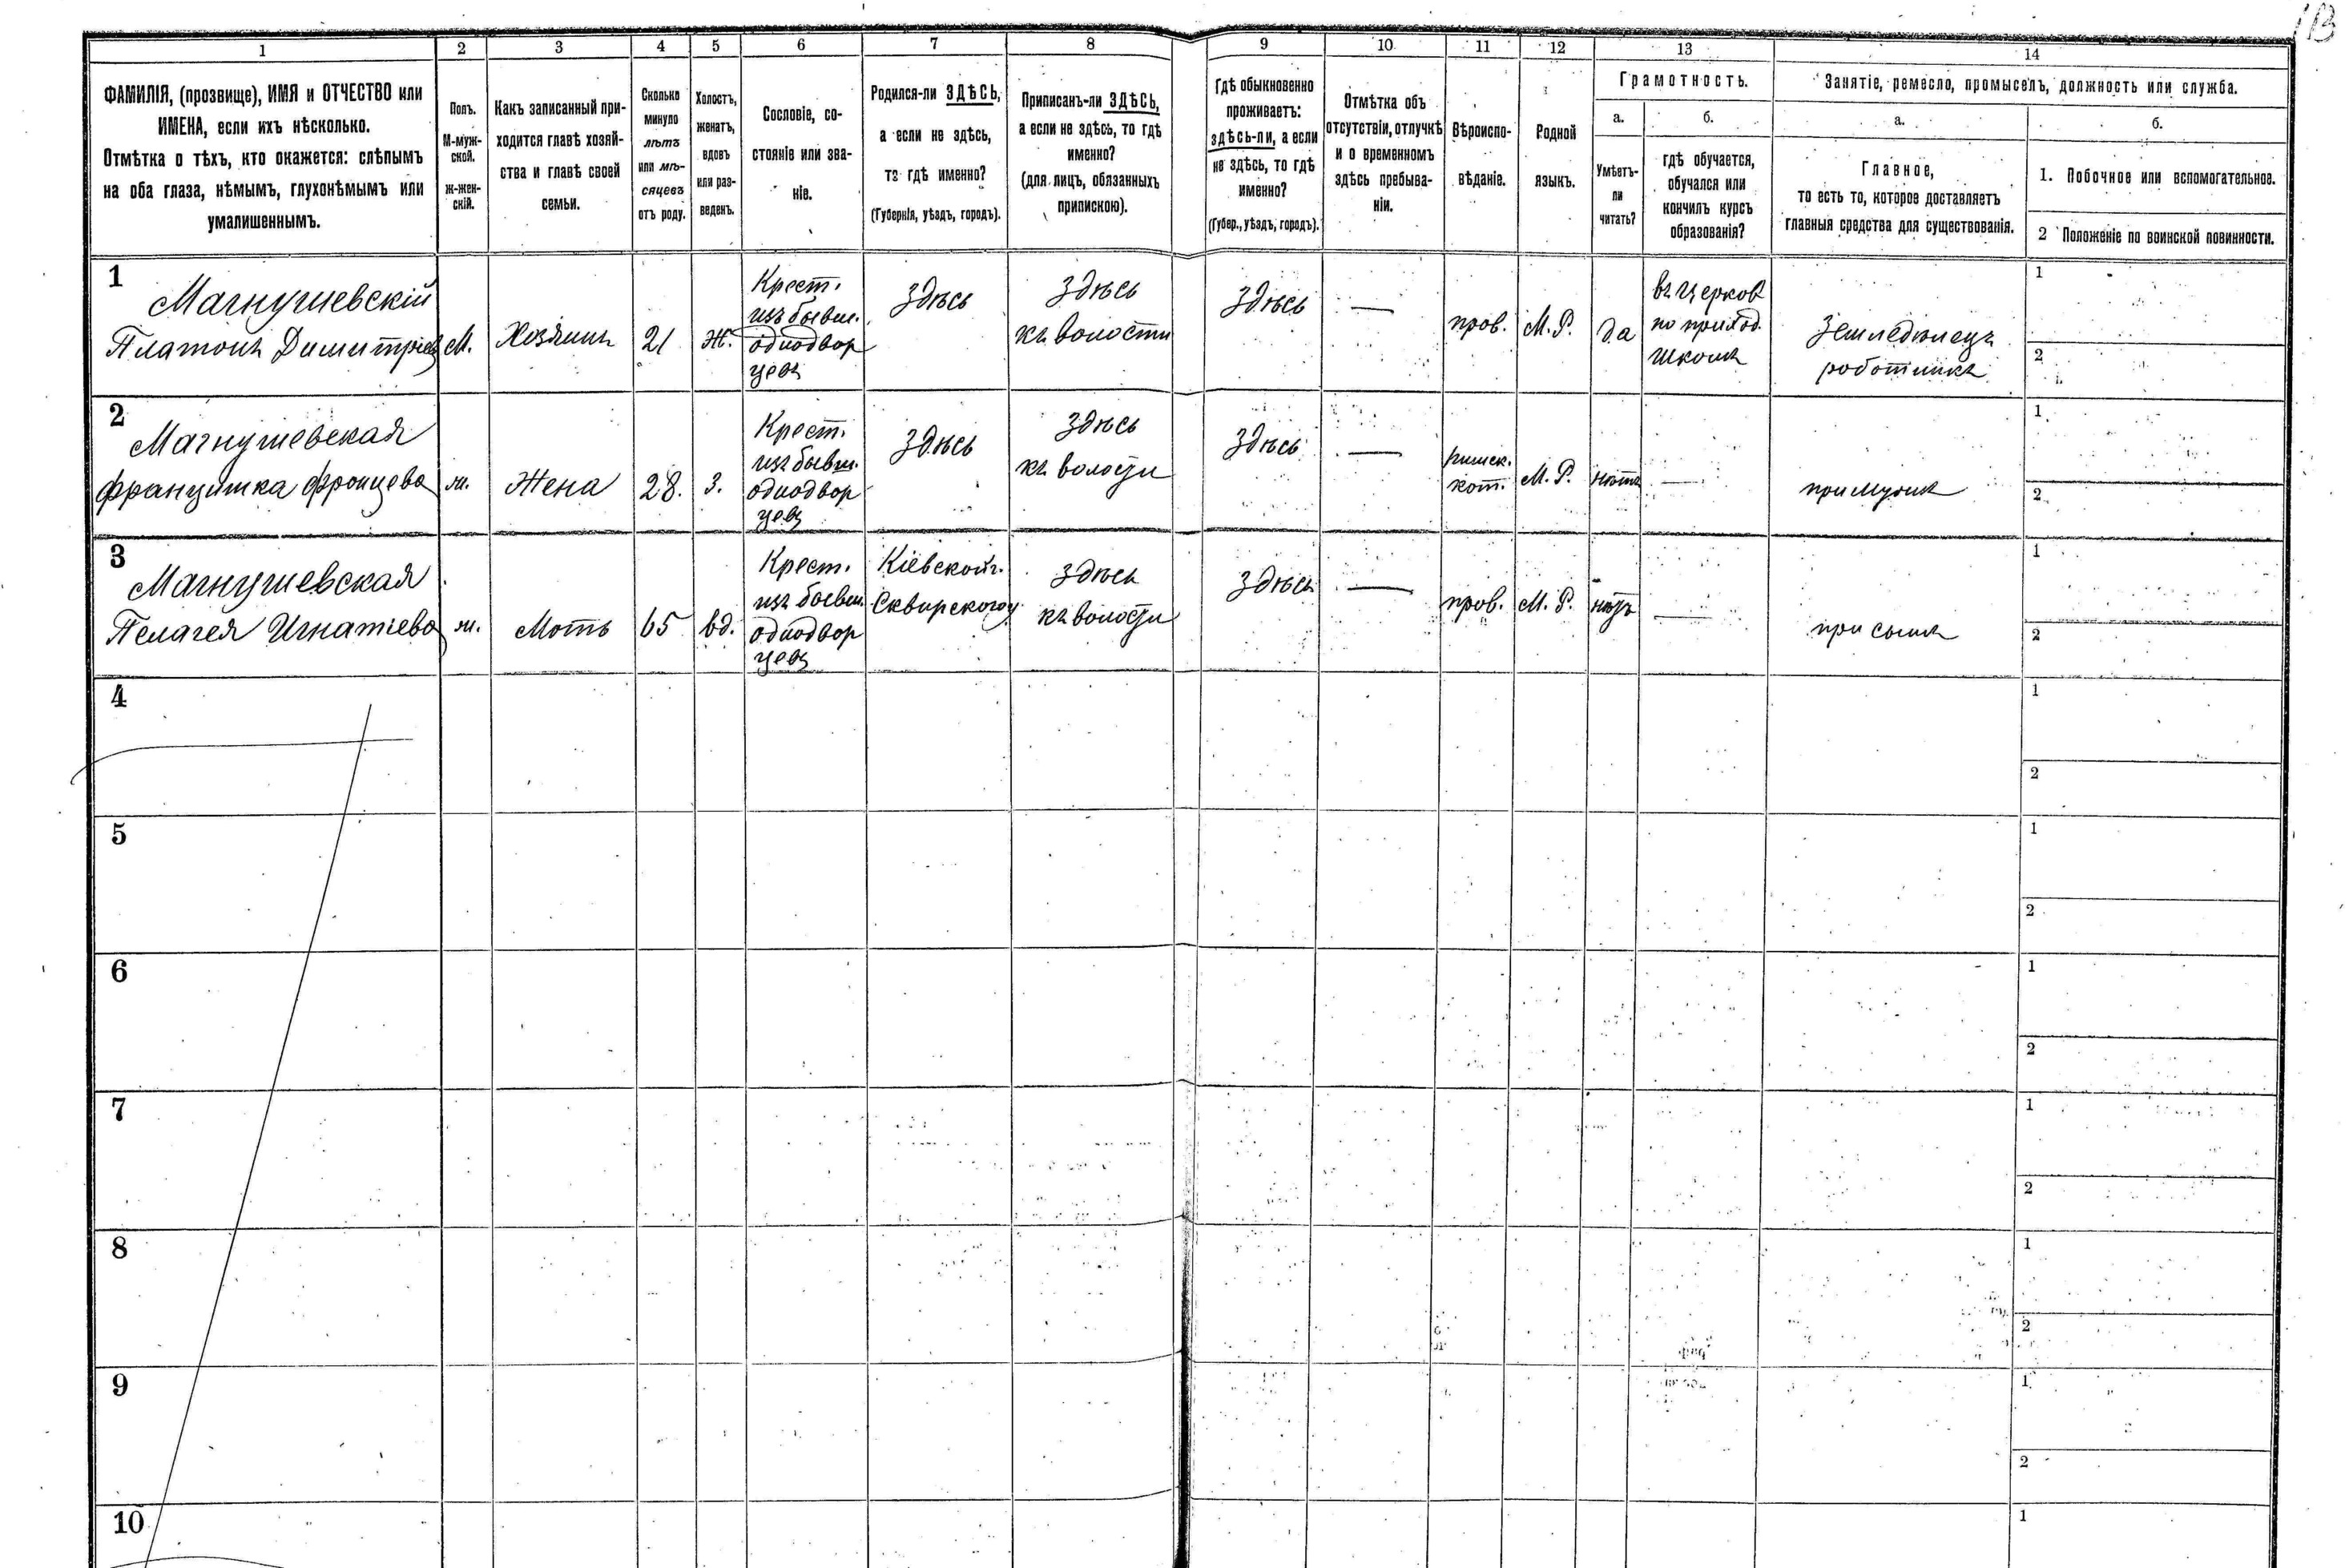 1В
1 2 3 4 5 6 7 8 9 10 11 12 13 14
ФАМИЛІЯ, (прозвище), ИМЯ и ОТЧЕСТВО или
ИМЕНА, если ихъ нѣсколько.
Отмѣтка о тѣхъ, кто окажется: слѣпымъ
на оба глаза, нѣмымъ, глухонѣмымъ или
умалишеннымъ.
Полъ.
М-муж-
ской.
ж-жен-
скій.
Какъ записанный при-
ходится главѣ хозяй-
ства и главѣ своей
семьи.
Сколько
минуло
лѣтъ
или мѣ-
сяцевъ
отъ роду.
Холостъ,
женатъ,
вдовъ
или раз-
веденъ.
Сословіе, со-
стояніе или зва-
ніе.
Родился-ли ЗДѢСЬ,
а если не здѣсь,
то гдѣ именно?
(Губернія, уѣздъ, городъ).
Приписанъ-ли ЗДѢСЬ,
а если не здѣсь, то гдѣ
именно?
(для лицъ, обязанныхъ
припискою).
Гдѣ обыкновенно
проживаетъ:
здѣсь-ли, а если
не здѣсь, то гдѣ
именно?
(Губер., уѣздъ, городъ).
Отмѣтка объ
отсутствіи, отлучкѣ
и о временномъ
здѣсь пребыва-
ніи.
Вѣроиспо-
вѣданіе.
Родной
языкъ.
Грамотность.
а.
Умѣетъ-
ли
читать?
б.
гдѣ обучается,
обучался или
кончилъ курсъ
образованія?
Занятіе, ремесло, промыселъ, должность или служба.
а.
Главное,
то есть то, которое доставляетъ
главныя средства для существованія.
б.
1. Побочное или вспомогательное.
2 Положеніе по воинской повинности.
1
Магнушевскій
Платонъ Димитріев
М.
Хозяинъ
21
Ж.
Крест.
изъ бывш.
однодвор
цевъ
Здѣсь
Здѣсь
къ волости
Здѣсь
—
пров.
М. Р.
да
въ церков
но приход.
школѣ
Земледѣлецъ
роботникъ
1
2
2
Магнушевская
Францишка Францева
ж.
Жена
28.
З.
Крест.
изъ бывш.
однодвор
цевъ
Здѣсь
Здѣсь
къ волости
Здѣсь
—
римск.
кот.
М. Р.
нѣтъ
—
при мужѣ
1
2
3
Магнушевская
Пелагея Игнатіева
ж.
Моть
65
вд.
Крест.
изъ бывш.
однодвор
цевъ
Кіевской г.
Сквирского у
Здѣсь
къ волости
Здѣсь
—
пров.
М. Р.
нѣтъ
—
при сынѣ
1
2
4
1
2
5
1
2
6
1
2
7
1
2
8
1
2
9
1
2
10
1